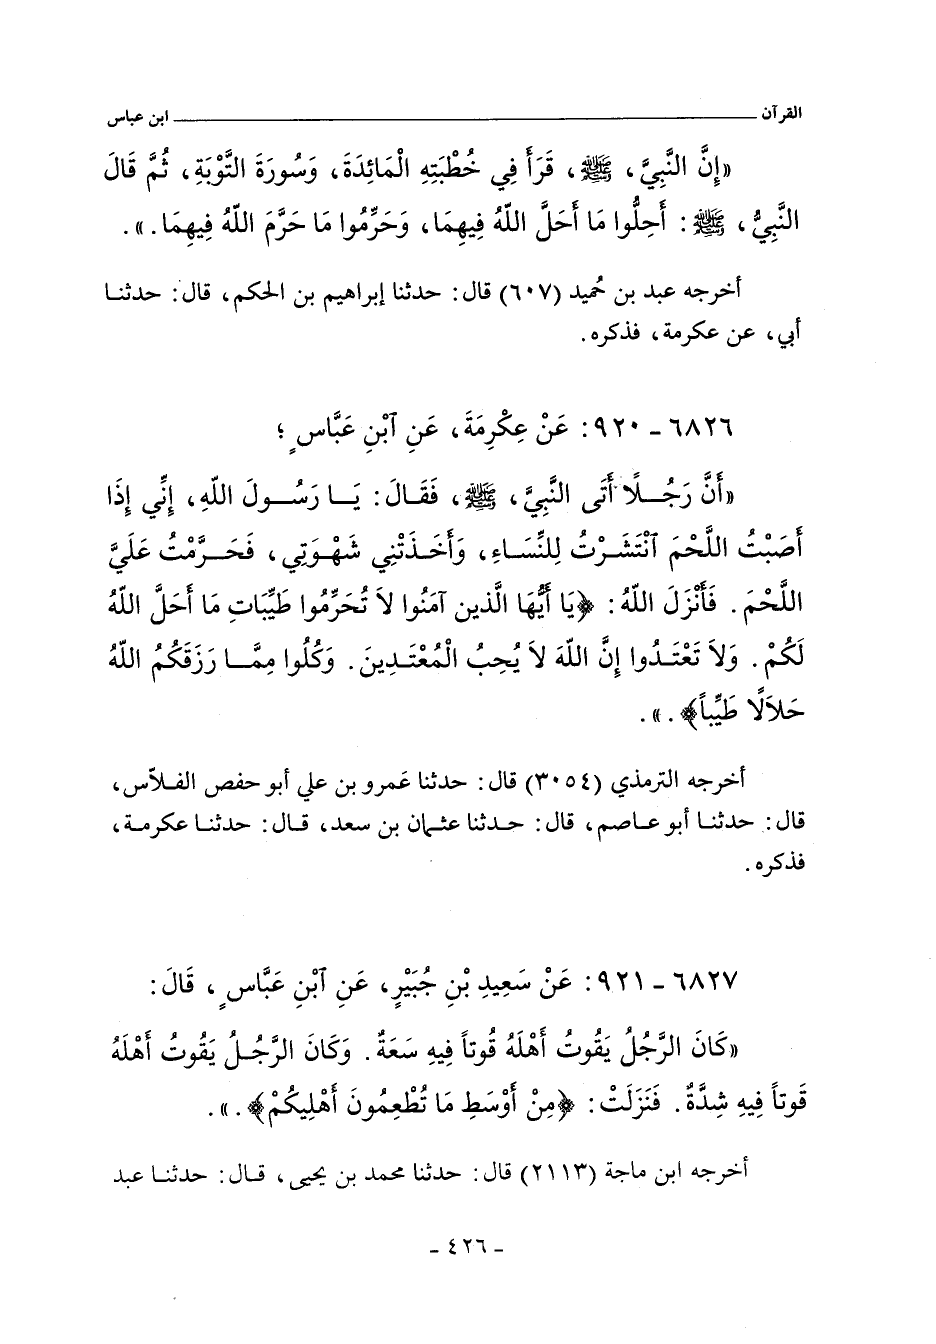 القرآن ابن عباس
«إِنَّ النَّبِيَّ، ﷺ، قَرَأَ فِي خُطْبَتِهِ الْمَائِدَةَ، وَسُورَةَ التَّوْبَةِ، ثُمَّ قَالَ
النَّبِيُّ، ﷺ: أَحِلُّوا مَا أَحَلَّ اللهُ فِيهِمَا، وَحَرِّمُوا مَا حَرَّمَ اللهُ فِيهِمَا.».
أخرجه عبد بن حُميد (٦٠٧) قال: حدثنا إبراهيم بن الحكم، قال: حدثنا
أبي، عن عكرمة، فذكره.
٦٨٢٦ - ٩٢٠: عَنْ عِكْرِمَةَ، عَنِ ٱبْنِ عَبَّاسٍ؛
«أَنَّ رَجُلًا أَتَى النَّبِيَّ، ﷺ، فَقَالَ: يَا رَسُولَ اللهِ، إِنِّي إِذَا
أَصَبْتُ اللَّحْمَ ٱنْتَشَرْتُ لِلنِّسَاءِ، وَأَخَذَتْنِي شَهْوَتِي، فَحَرَّمْتُ عَلَيَّ
اللَّحْمَ. فَأَنْزَلَ اللهُ: ﴿يَا أَيُّهَا الَّذين آمَنُوا لاَ تُحَرِّمُوا طَيِّبَاتِ مَا أَحَلَّ اللهُ
لَكُمْ. وَلاَ تَعْتَدُوا إِنَّ اللهَ لاَ يُحِبُّ الْمُعْتَدِينَ. وَكُلُوا مِمَّا رَزَقَكُمُ اللهُ
حَلاَلًا طَيِّباً﴾.».
أخرجه الترمذي (٣٠٥٤) قال: حدثنا عَمرو بن علي أبو حفص الفلاّس،
قال: حدثنا أبو عاصم، قال: حدثنا عثمان بن سعد، قال: حدثنا عكرمة،
فذكره.
٦٨٢٧ - ٩٢١: عَنْ سَعِيدِ بْنِ جُبَيْرٍ، عَنِ ٱبْنِ عَبَّاسٍ، قَالَ:
«كَانَ الرَّجُلُ يَقُوتُ أَهْلَهُ قُوتاً فِيهِ سَعَةٌ. وَكَانَ الرَّجُلُ يَقُوتُ أَهْلَهُ
قَوتاً فِيهِ شِدَّةٌ. فَنَزَلَتْ: ﴿مِنْ أَوْسَطِ مَا تُطْعِمُونَ أَهْلِيكُمْ﴾.».
أخرجه ابن ماجة (٢١١٣) قال: حدثنا محمد بن يحيى، قال: حدثنا عبد
- ٤٢٦ -